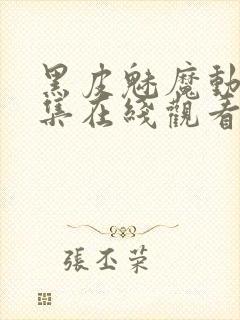 黑皮魅魔動
集在綫觀看
張丕荣